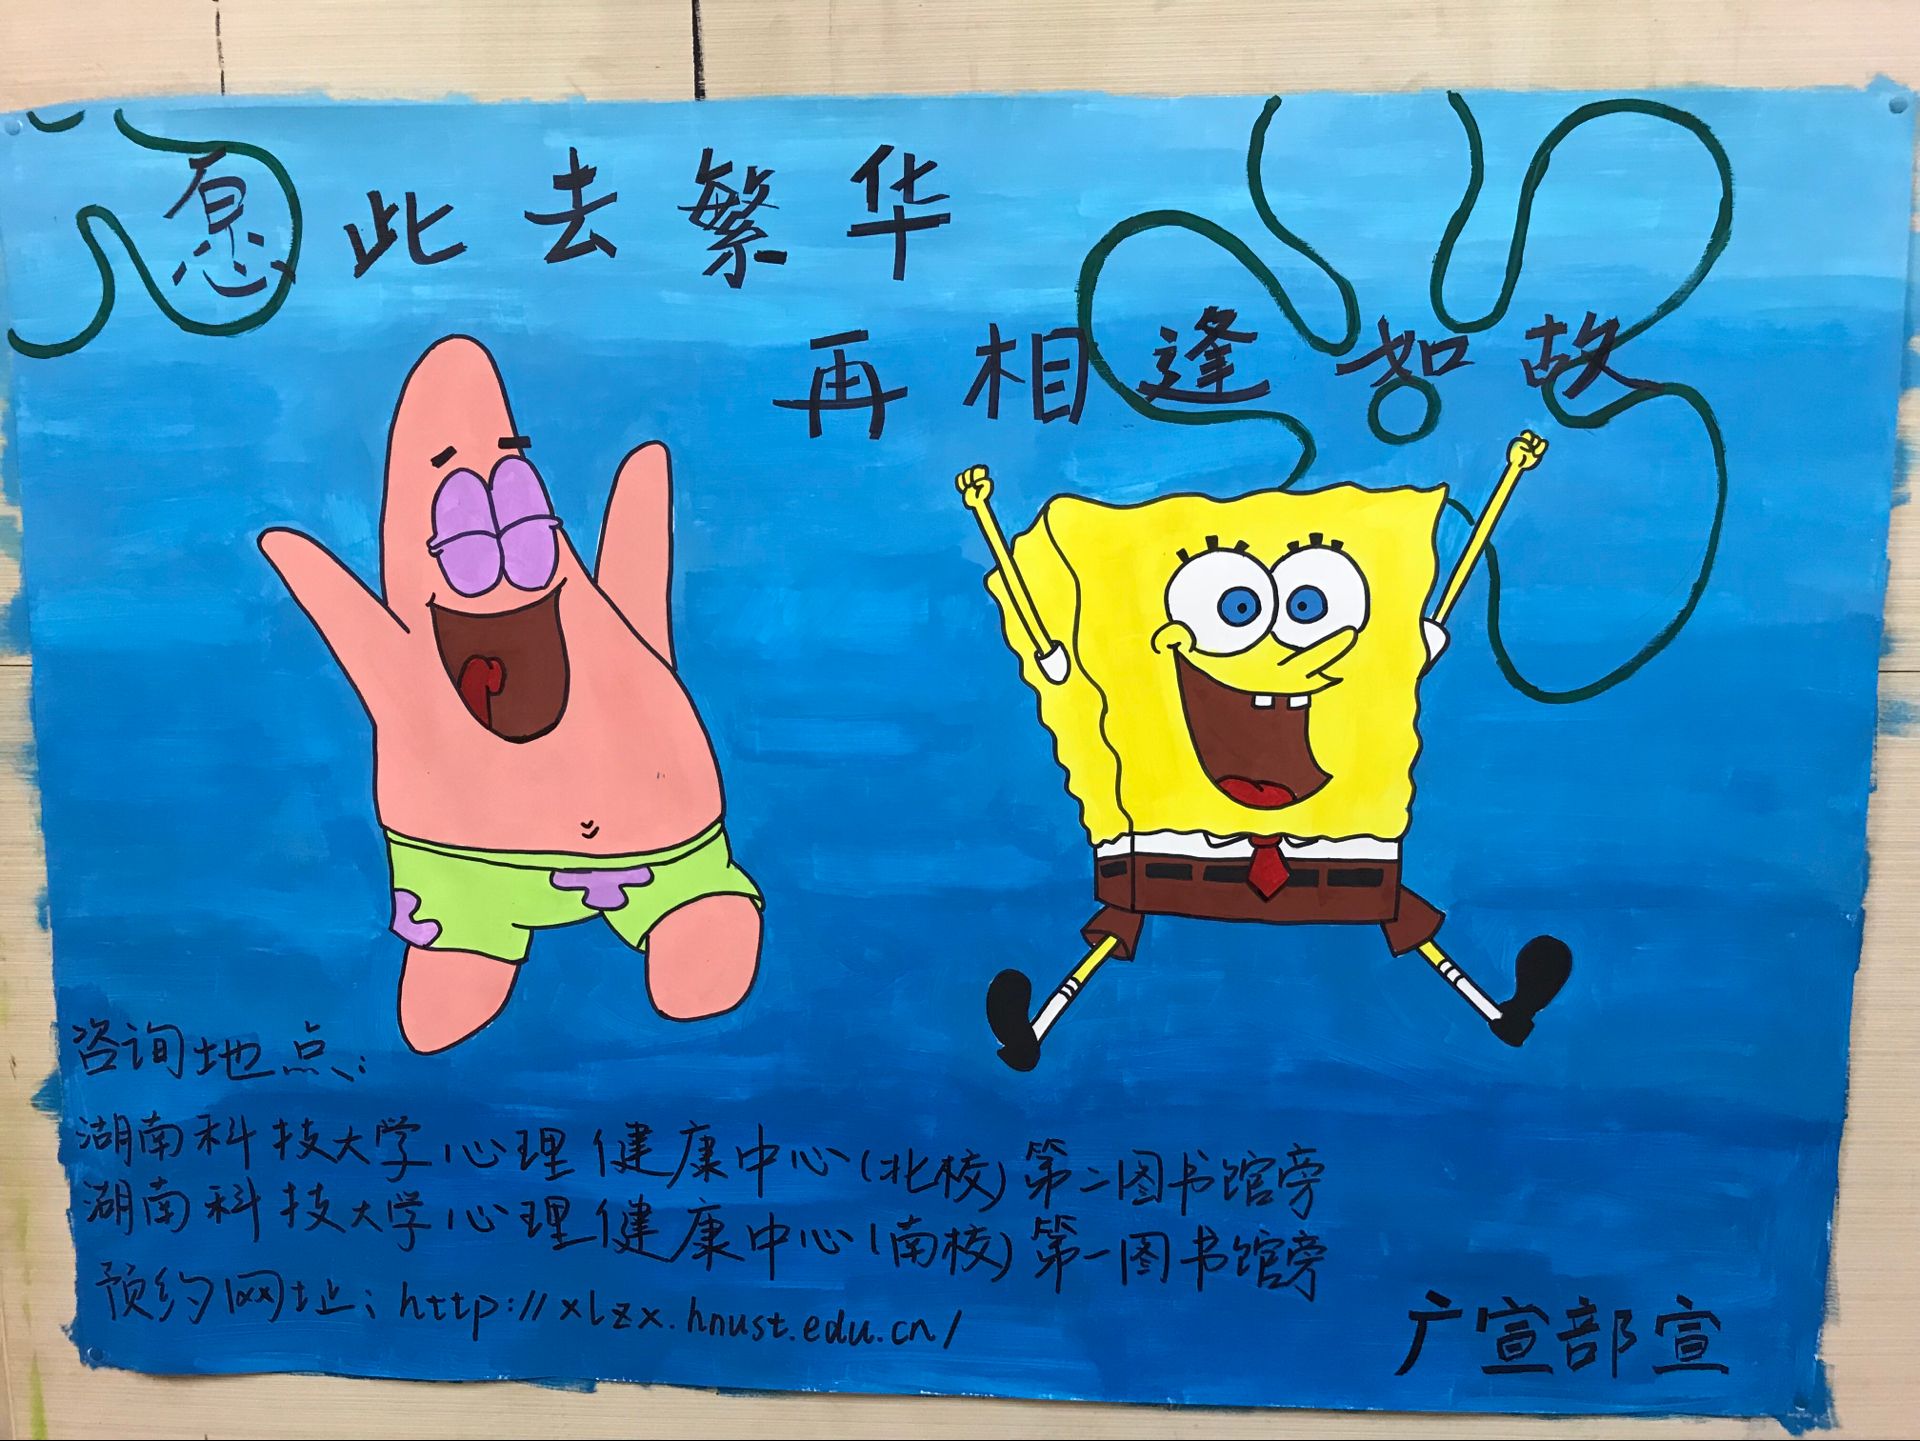 愿此去繁华
再相逢如故
咨询地点:
湖南科技大学心理健康中心(北校)第二图书馆旁
湖南科技大学心理健康中心(南校)第一图书馆旁
预约网址:http://xlzx.hnust.edu.cn/
广宣部宣